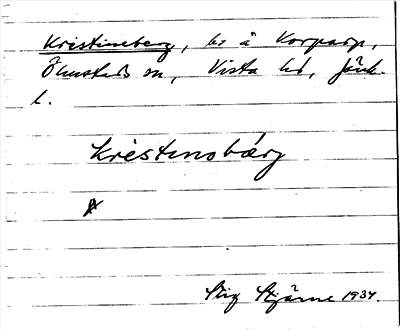 Kristineberg, bs å Korparp,
Ölmstads sn, Vista hd, Jönk.
l.
kristinsbärg
Stig Stjärne 1934.